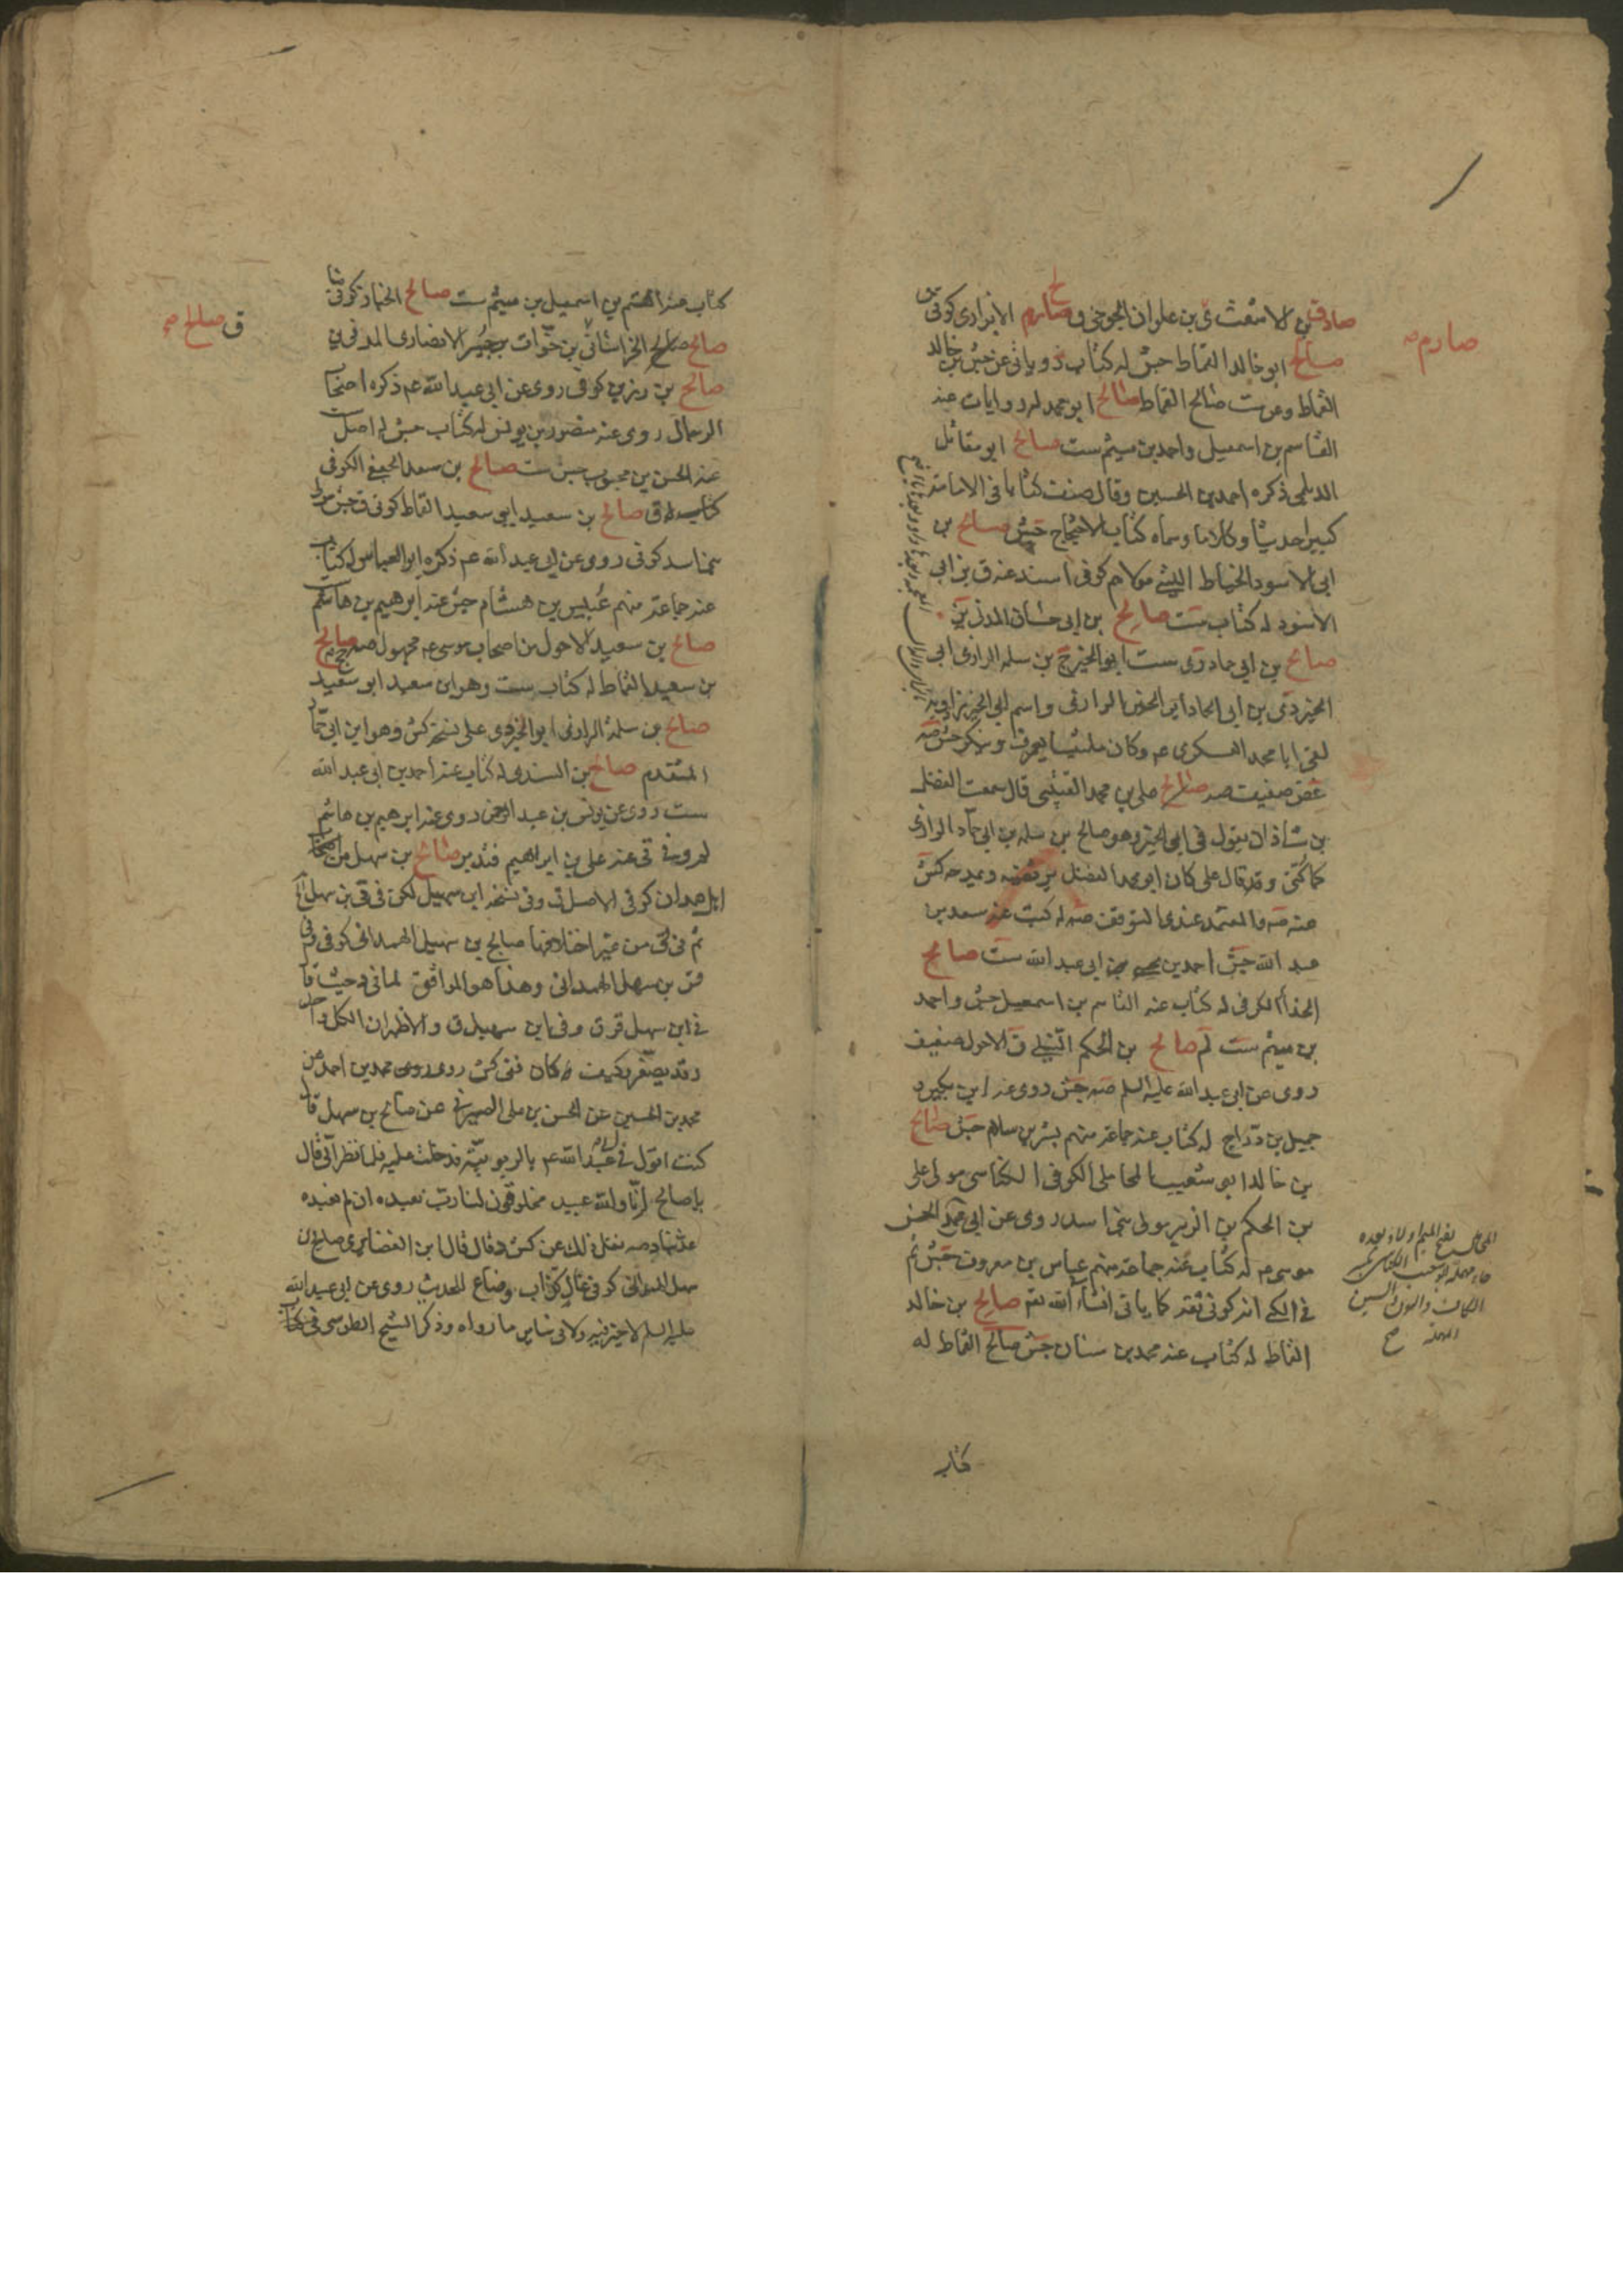 صادق بن الاشعث ى بن علوان الجوخى ق صارم الابزارى كوفى
صالح ابو خالد القماط جش له كتاب
القماط صالح القماط صالح ابو محمد له روايات عنه
القاسم بن اسمعيل واحمد بن ميثم ست صالح ابو مقاتل
الديلمى ذكره احمد بن الحسين وقال صنف كتابا فى الامامة
كبيرا حديثا وكلاما وسماه كتاب الاحتجاج جش صالح بن
ابى الاسود الخياط الليثى مولاهم كوفى اسند عنه ق بن ابى
الاسود له كتاب ست صالح بن ابى حسان المدنى ين
صالح بن ابى حماد دى ست ابو الخير ج بن سلمه الرازى ابى
الخير دى بن ابى الحماد ابو الخير الرازى واسم ابى الخير زادويه
لقى ابا محمد العسكرى عم وكان ملتبسا يعرف وينكر جش صه
غض ضعيف صه صالح على بن محمد القتيبى قال سمعت الفضل
بن شاذان يقول فى ابى الخير وهو صالح بن سلمه بن ابى حماد الرازى
كما كنى وقد قال على كان ابو محمد الفضل يرتضيه ويمدحه كش
عنه صه والمعتمد عندى التوقف صه له كتب عنه سعد بن
عبد الله جش احمد بن ابى عبد الله ست صالح
الحذاء الكوفى له كتاب عنه القاسم بن اسمعيل جش واحمد
بن ميثم ست لم صالح بن الحكم النيلى ق الاحول ضعيف
روى عن ابى عبد الله عليه السلم صه جش روى عنه ابن بكير و
جميل بن دراج له كتاب عنه جماعة منهم بشر بن سلام جش صالح
بن خالد ابو شعيب المحاملى الكوفى الكناسى مولى على
بن الحكم بن الزبير مولى بنى اسد روى عن ابى الحسن
موسى عم له كتاب عنه جماعة منهم عباس بن معروف جش ثم
فى الكنى انه كوفى ثقه كما ياتى انشاء الله تعم صالح بن خالد
القماط له كتاب عنه محمد بن سنان جش صالح القماط له
كتاب
صارم صه
المحاملى بفتح الميم اولا وبعده
حاء مهملة ابو شعيب الكناسى بضم
الكاف والنون والسين
المهملة صح
كتاب عنه القسم بن اسمعيل بن ميثم ست صالح الخباز كوفى
صالح صالح الخراسانى بن خوات بن جبير الانصارى المدنى ين
صالح بن رزين كوفى روى عن ابى عبد الله عم ذكره اصحاب
الرجال روى عنه منصور بن يونس له كتاب جش له اصل
عنه الحسن بن محبوب جش ست صالح بن سعد الجعفى الكوفى
كتاب له ق صالح بن سعيد ابو سعيد القماط كوفى ق جش مولى
بنى اسد كوفى روى عن ابى عبد الله عم ذكره ابو العباس له كتاب
عنه جماعة منهم عبيس بن هشام جش عنه ابرهيم بن هاشم
صالح بن سعيد الاحول من اصحاب موسى عم مجهول صه صالح
بن سعيد القماط له كتاب ست وهو ابن سعيد ابو سعيد
صالح بن سلمة الرازى ابو الخير دى على نسخة كش وهو ابن ابى حماد
المتقدم صالح بن السندى له كتاب عنه احمد بن ابى عبد الله
ست روى عن يونس بن عبد الرحمن روى عنه ابرهيم بن هاشم
لم وفى عنه على بن ابراهيم فتدبر صالح بن سهل من اصحاب
اهل همدان كوفى الاصل ق وفى نسخة ابن سهيل لكن فى ق بن سهل
ثم فى ق من غير اختلافها صالح بن سهيل الهمدانى كوفى
قر بن سهل الهمدانى وهذا هو الموافق لما فى د حيث قال
فى ابن سهل قر ق وفى ابن سهيل ق والاظهر ان الكل واحد
وقد يصغر وكيف كان ففى كش روى محمد بن احمد عن
محمد بن الحسين عن الحسن بن على الصيرفى عن صالح بن سهل قال
كنت اقول فى عبد الله عم بالربوبية فدخلت عليه فلما نظر الى قال
يا صالح انا والله عبيد مخلوقون لنا رب نعبده ان لم نعبده
عذبنا وصه نقل ذلك عن كش وقال قال ابن الغضايرى صالح بن
سهل الهمدانى كوفى غال كذاب وضاع للحديث روى عن ابى عبد الله
عليه السلم لا خير فيه ولا فى ساير ما رواه وذكر الشيخ الطوسى فى كتاب
ق صالح صه